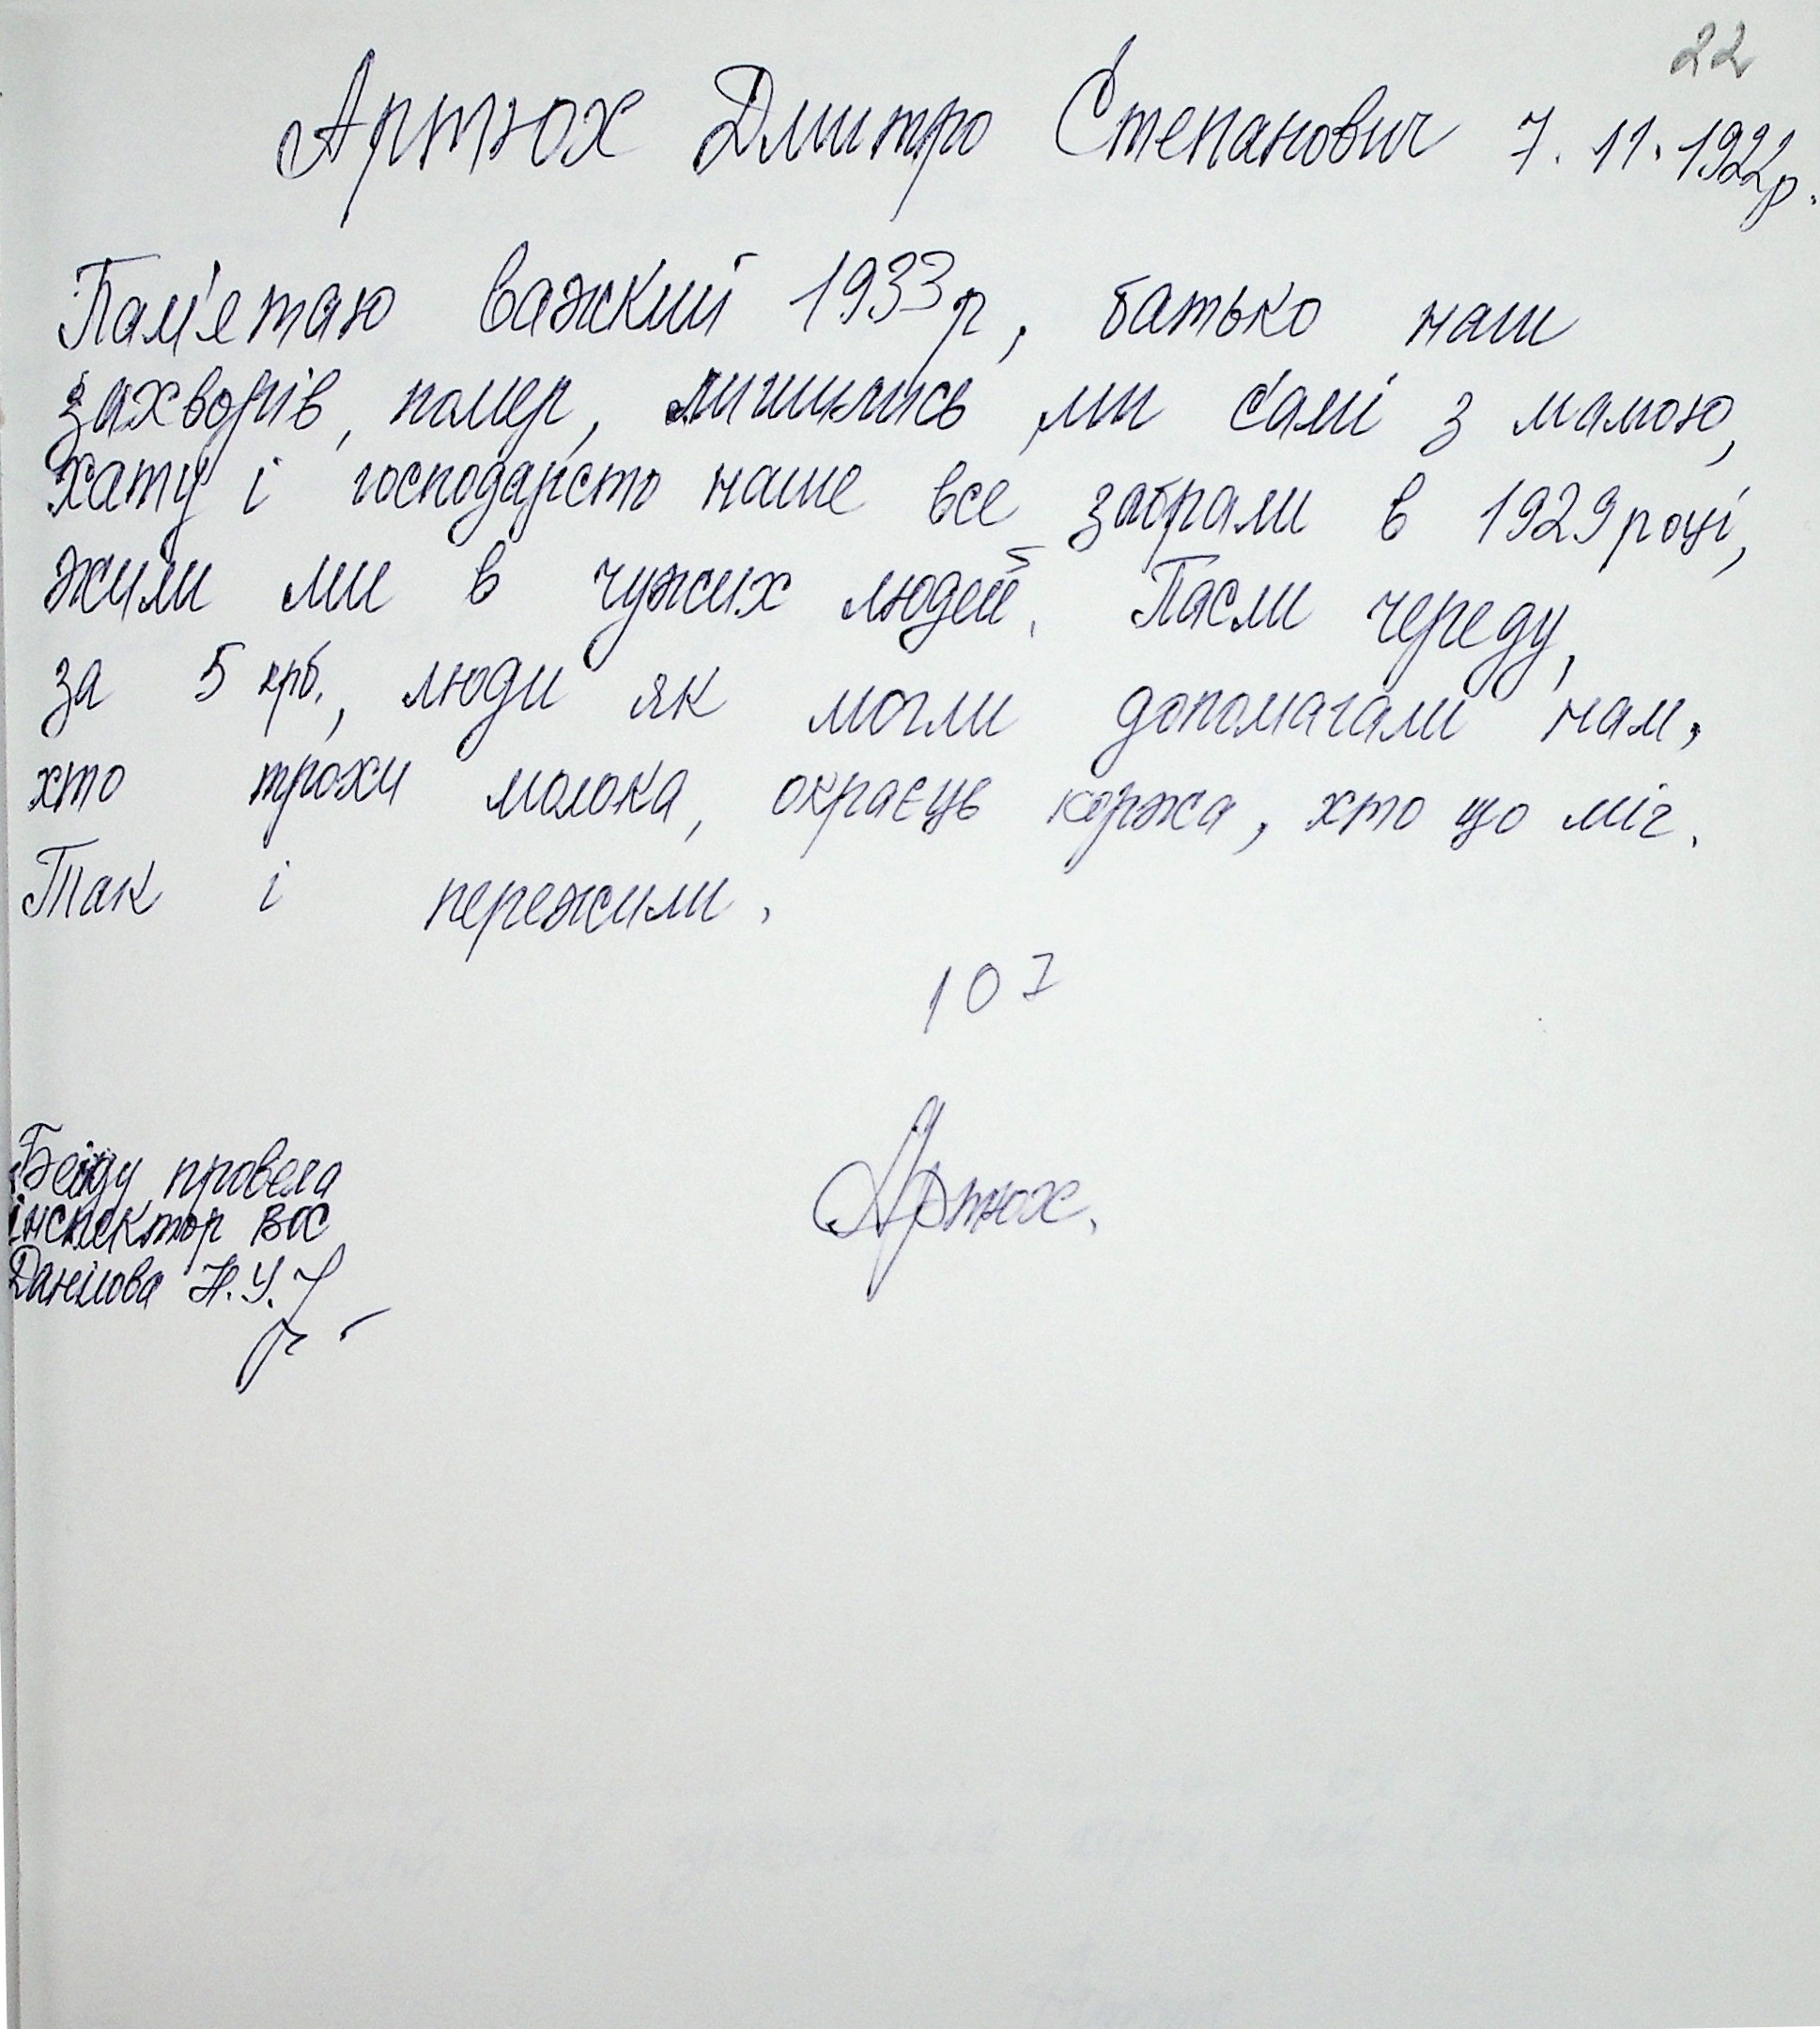 22
Артюх Дмитро Степанович 7.11.1922р.
Пам'ятаю важкий 1933р, батько наш
захворів, помер, лишились ми самі з мамою,
хату і господарсто наше все забрали в 1929 році,
жили ми в чужих людей. Пасли череду,
за 5 крб., люди як могли допомагали нам,
хто трохи молока, окраєць коржа, хто що міг.
Так і пережили.
107
Артюх.
провела
інспектор ВОС
Данілова Н.У.